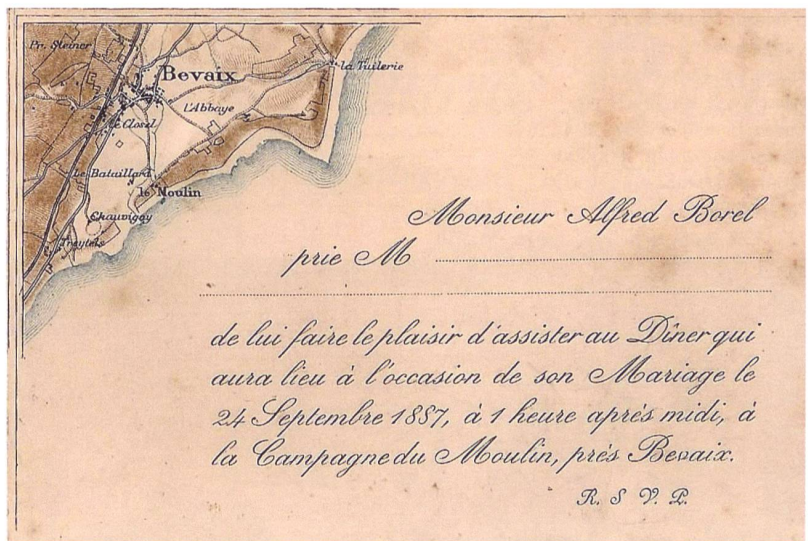 Pr. Steiner
Bevaix
la Tuilerie
l'Abbaye
le Closel
Le Bataillard
le Moulin
Chauvigny
Treytels
Monsieur Alfred Borel
prie M
de lui faire le plaisir d'assister au Dîner qui
aura lieu à l'occasion de son Mariage le
24 Septembre 1887, à 1 heure après midi, à
la Campagne du Moulin, près Bevaix.
R. S. V. P.